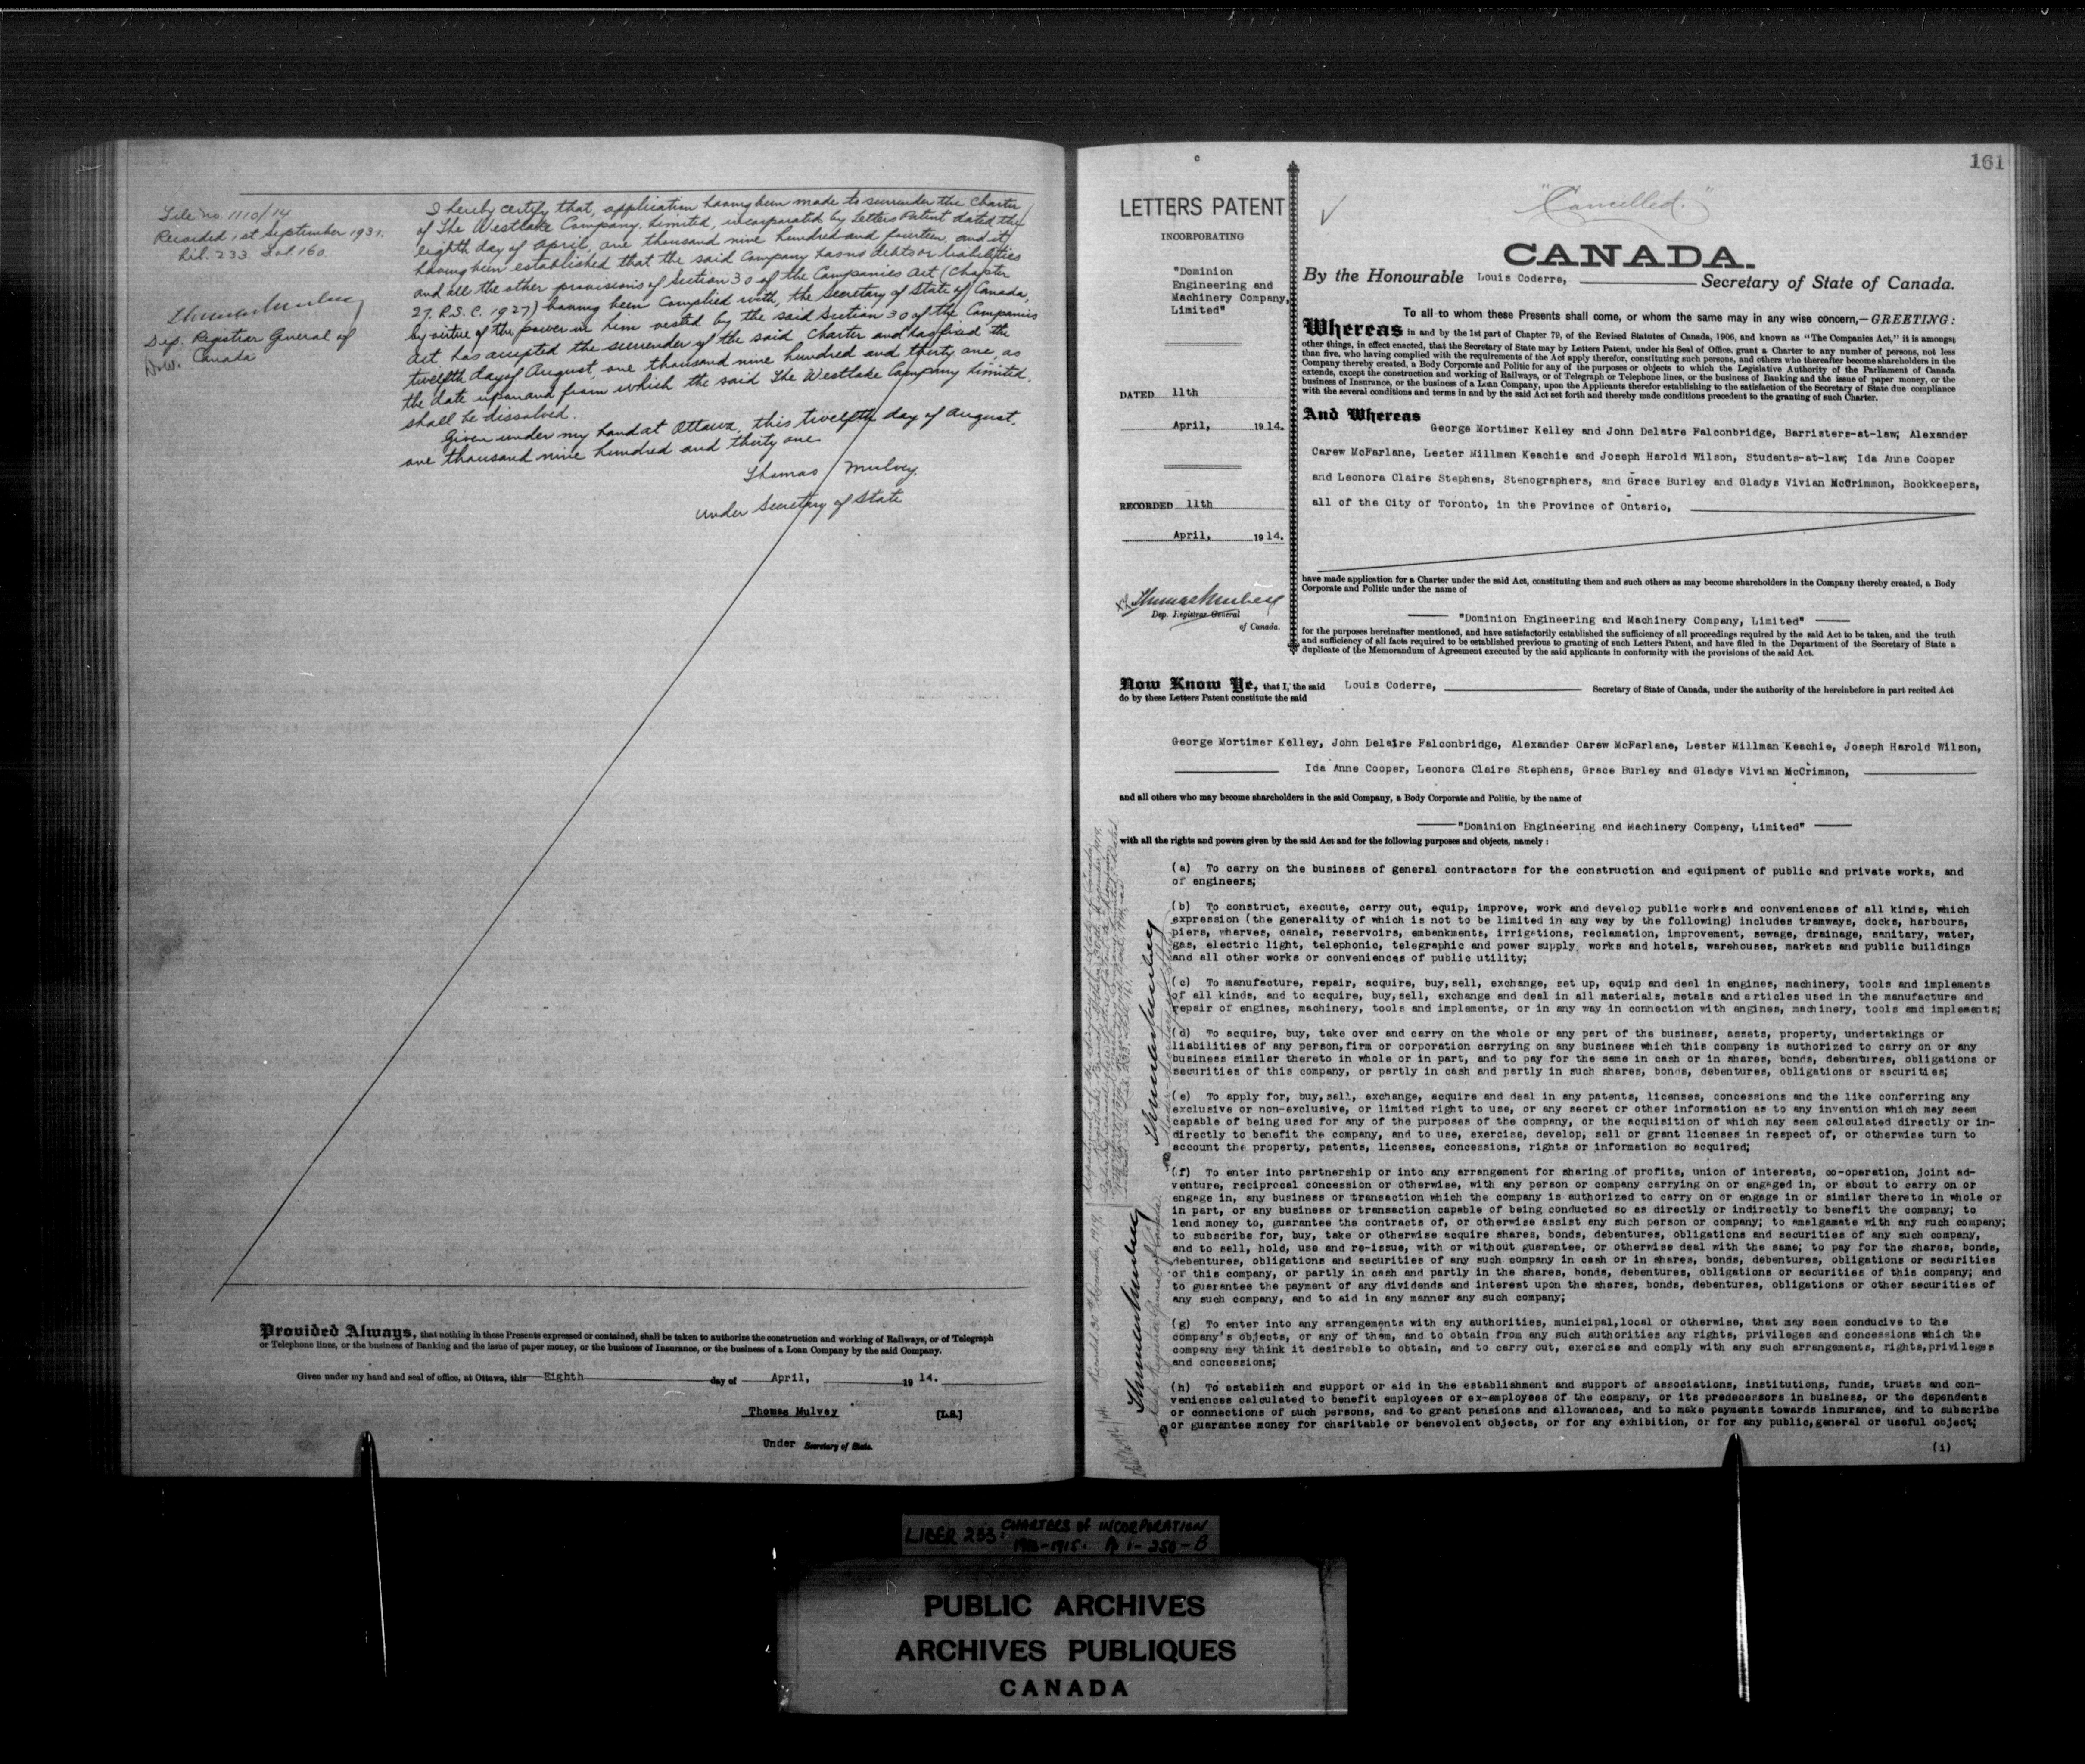 File no. 1110/14
Recorded 1st September 1931.
Lib. 233. Fol. 160
Thomas Mulvey
Dep. Registrar General of
Canada
I hereby certify that, application having been made to surrender the Charter
of The Westlake Company, Limited, incorporated by Letters Patent dated the
eighth day of April, one thousand nine hundred and fourteen, and it
having been established that the said Company has no debts or liabilities
and all the other provisions of Section 30 of the Companies Act (Chapter
27. R.S.C. 1927) having been complied with, the Secretary of State of Canada,
by virtue of the power in him vested by the said Section 30 of the Companies
Act has accepted the surrender of the said Charter and has fixed the
twelfth day of August, one thousand nine hundred and thirty one, as
the date upon and from which the said The Westlake Company Limited,
shall be dissolved.
Given under my hand at Ottawa, this twelfth day of August,
one thousand nine hundred and thirty one.
Thomas Mulvey.
Under Secretary of State
Provided Always, that nothing in these Presents expressed or contained, shall be taken to authorize the construction and working of Railways, or of Telegraph
or Telephone lines, or the business of Banking and the issue of paper money, or the business of Insurance, or the business of a Loan Company by the said Company.
Given under my hand and seal of office, at Ottawa, this Eighth day of April, 19 14.
Thomas Mulvey [L.S.]
Under Secretary of State.
161
LETTERS PATENT
INCORPORATING
"Dominion
Engineering and
Machinery Company,
Limited"
DATED 11th
April, 19 14.
RECORDED 11th
April, 19 14.
Thomas Mulvey
Dep. Registrar General
of Canada.
"Cancelled."
CANADA.
By the Honourable Louis Coderre, Secretary of State of Canada.
To all to whom these Presents shall come, or whom the same may in any wise concern,—GREETING:
Whereas in and by the 1st part of Chapter 79, of the Revised Statutes of Canada, 1906, and known as "The Companies Act," it is amongst
other things, in effect enacted, that the Secretary of State may by Letters Patent, under his Seal of Office, grant a Charter to any number of persons, not less
than five, who having complied with the requirements of the Act apply therefor, constituting such persons, and others who thereafter become shareholders in the
Company thereby created, a Body Corporate and Politic for any of the purposes or objects to which the Legislative Authority of the Parliament of Canada
extends, except the construction and working of Railways, or of Telegraph or Telephone lines, or the business of Banking and the issue of paper money, or the
business of Insurance, or the business of a Loan Company, upon the Applicants therefor establishing to the satisfaction of the Secretary of State due compliance
with the several conditions and terms in and by the said Act set forth and thereby made conditions precedent to the granting of such Charter.
And Whereas
George Mortimer Kelley and John Delatre Falconbridge, Barristers-at-law; Alexander
Carew McFarlane, Lester Millman Keachie and Joseph Harold Wilson, Students-at-law; Ida Anne Cooper
and Leonora Claire Stephens, Stenographers, and Grace Burley and Gladys Vivian McCrimmon, Bookkeepers,
all of the City of Toronto, in the Province of Ontario,
have made application for a Charter under the said Act, constituting them and such others as may become shareholders in the Company thereby created, a Body
Corporate and Politic under the name of
"Dominion Engineering and Machinery Company, Limited"
for the purposes hereinafter mentioned, and have satisfactorily established the sufficiency of all proceedings required by the said Act to be taken, and the truth
and sufficiency of all facts required to be established previous to granting of such Letters Patent, and have filed in the Department of the Secretary of State a
duplicate of the Memorandum of Agreement executed by the said applicants in conformity with the provisions of the said Act.
Now Know Ye, that I, the said Louis Coderre, Secretary of State of Canada, under the authority of the hereinbefore in part recited Act
do by these Letters Patent constitute the said
George Mortimer Kelley, John Delatre Falconbridge, Alexander Carew McFarlane, Lester Millman Keachie, Joseph Harold Wilson,
Ida Anne Cooper, Leonora Claire Stephens, Grace Burley and Gladys Vivian McCrimmon,
and all others who may become shareholders in the said Company, a Body Corporate and Politic, by the name of
"Dominion Engineering and Machinery Company, Limited"
with all the rights and powers given by the said Act and for the following purposes and objects, namely:
(a) To carry on the business of general contractors for the construction and equipment of public and private works, and
of engineers;
(b) To construct, execute, carry out, equip, improve, work and develop public works and conveniences of all kinds, which
expression (the generality of which is not to be limited in any way by the following) includes tramways, docks, harbours,
piers, wharves, canals, reservoirs, embankments, irrigations, reclamation, improvement, sewage, drainage, sanitary, water,
gas, electric light, telephonic, telegraphic and power supply works and hotels, warehouses, markets and public buildings
and all other works or conveniences of public utility;
(c) To manufacture, repair, acquire, buy, sell, exchange, set up, equip and deal in engines, machinery, tools and implements
of all kinds, and to acquire, buy, sell, exchange and deal in all materials, metals and articles used in the manufacture and
repair of engines, machinery, tools and implements, or in any way in connection with engines, machinery, tools and implements;
(d) To acquire, buy, take over and carry on the whole or any part of the business, assets, property, undertakings or
liabilities of any person, firm or corporation carrying on any business which this company is authorized to carry on or any
business similar thereto in whole or in part, and to pay for the same in cash or in shares, bonds, debentures, obligations or
securities of this company, or partly in cash and partly in such shares, bonds, debentures, obligations or securities;
(e) To apply for, buy, sell, exchange, acquire and deal in any patents, licenses, concessions and the like conferring any
exclusive or non-exclusive, or limited right to use, or any secret or other information as to any invention which may seem
capable of being used for any of the purposes of the company, or the acquisition of which may seem calculated directly or in-
directly to benefit the company, and to use, exercise, develop, sell or grant licenses in respect of, or otherwise turn to
account the property, patents, licenses, concessions, rights or information so acquired;
(f) To enter into partnership or into any arrangement for sharing of profits, union of interests, co-operation, joint ad-
venture, reciprocal concession or otherwise, with any person or company carrying on or engaged in, or about to carry on or
engage in, any business or transaction which the company is authorized to carry on or engage in or similar thereto in whole or
in part, or any business or transaction capable of being conducted so as directly or indirectly to benefit the company; to
lend money to, guarantee the contracts of, or otherwise assist any such person or company; to amalgamate with any such company;
to subscribe for, buy, take or otherwise acquire shares, bonds, debentures, obligations and securities of any such company,
and to sell, hold, use and re-issue, with or without guarantee, or otherwise deal with the same; to pay for the shares, bonds,
debentures, obligations and securities of any such company in cash or in shares, bonds, debentures, obligations or securities
of this company, or partly in cash and partly in the shares, bonds, debentures, obligations or securities of this company; and
to guarantee the payment of any dividends and interest upon the shares, bonds, debentures, obligations or other securities of
any such company, and to aid in any manner any such company;
(g) To enter into any arrangements with any authorities, municipal, local or otherwise, that may seem conducive to the
company's objects, or any of them, and to obtain from any such authorities any rights, privileges and concessions which the
company may think it desirable to obtain, and to carry out, exercise and comply with any such arrangements, rights, privileges
and concessions;
(h) To establish and support or aid in the establishment and support of associations, institutions, funds, trusts and con-
veniences calculated to benefit employees or ex-employees of the company, or its predecessors in business, or the dependents
or connections of such persons, and to grant pensions and allowances, and to make payments towards insurance, and to subscribe
or guarantee money for charitable or benevolent objects, or for any exhibition, or for any public, general or useful object;
(i)
Thomas Mulvey
Thomas Mulvey
LIBER 233: CHARTERS OF INCORPORATION
1913-1915. Pp 1-250-B
PUBLIC ARCHIVES
ARCHIVES PUBLIQUES
CANADA